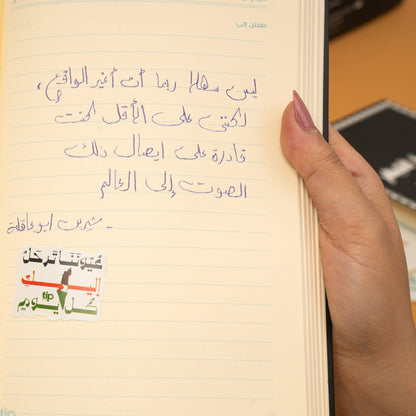 ممتن إلى:
ليس سهلا ربما أن أغير الواقع،
لكنني على الأقل كنت
قادرة على ايصال ذلك
الصوت إلى العالم
- شيرين ابو عاقلة
عيوننا ترحل
إليك
كل يوم
tip
tip